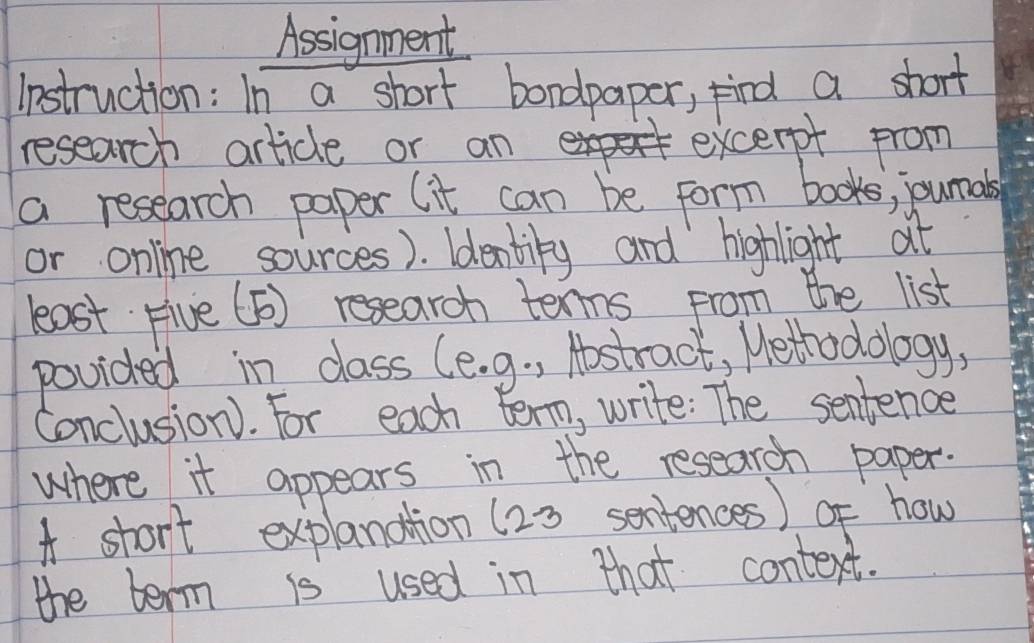 Assignment
Instruction: In a short bondpaper, find a short
research article or an expert excerpt from
a research paper (it can be form books, journals
or online sources). Identify and highlight at
least five (5) research terms from the list
povided in class (e.g., Abstract, Methodology,
Conclusion). For each term, write: The sentence
where it appears in the research paper.
A short explanation (2-3 sentences) of how
the term is used in that context.